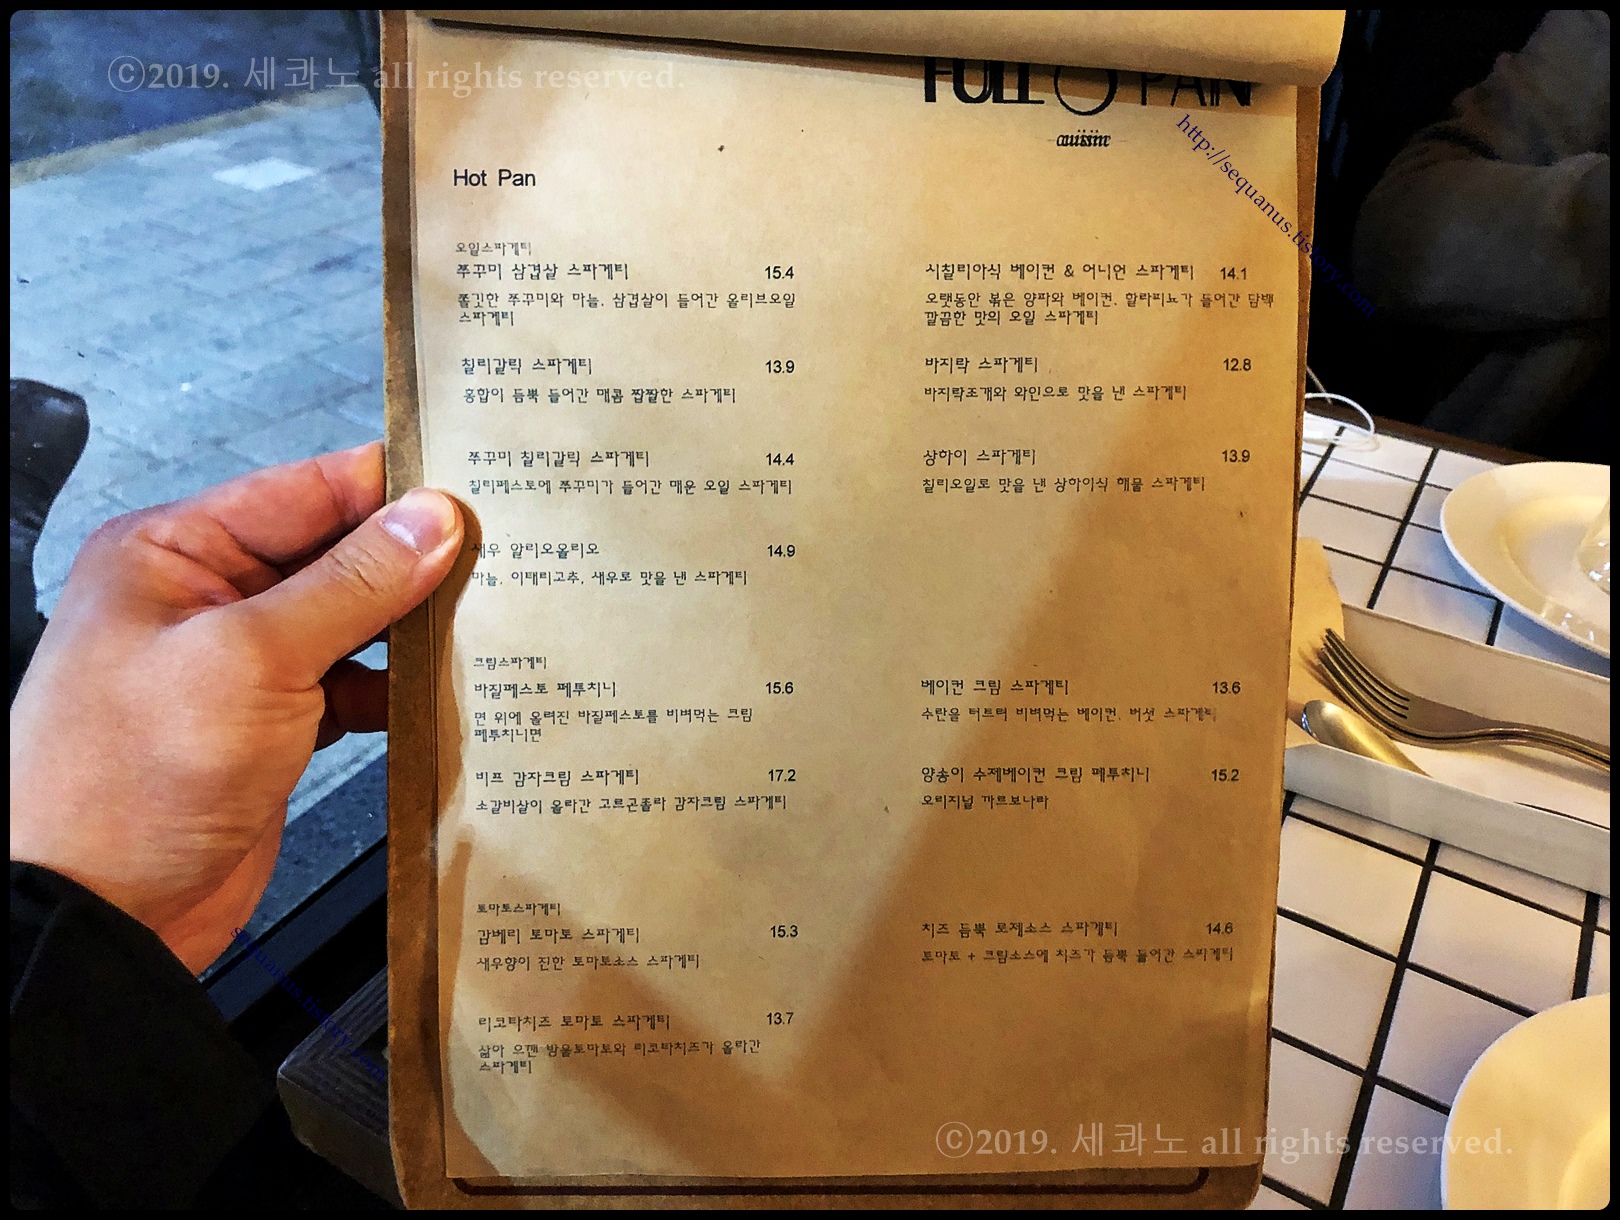 ⓒ2019. 세콰노 all rights reserved.
FULL O PAN
cuisine
http://sequanus.tistory.com
Hot Pan
오일스파게티
쭈꾸미 삼겹살 스파게티 15.4
쫄깃한 쭈꾸미와 마늘, 삼겹살이 들어간 올리브오일
스파게티
칠리갈릭 스파게티 13.9
홍합이 듬뿍 들어간 매콤 짭짤한 스파게티
쭈꾸미 칠리갈릭 스파게티 14.4
칠리페스토에 쭈꾸미가 들어간 매운 오일 스파게티
새우 알리오올리오 14.9
마늘, 이태리고추, 새우로 맛을 낸 스파게티
시칠리아식 베이컨 & 어니언 스파게티 14.1
오랫동안 볶은 양파와 베이컨, 할라피뇨가 들어간 담백
깔끔한 맛의 오일 스파게티
바지락 스파게티 12.8
바지락조개와 와인으로 맛을 낸 스파게티
상하이 스파게티 13.9
칠리오일로 맛을 낸 상하이식 해물 스파게티
크림스파게티
바질페스토 페투치니 15.6
면 위에 올려진 바질페스토를 비벼먹는 크림
페투치니면
비프 감자크림 스파게티 17.2
소갈비살이 올라간 고르곤졸라 감자크림 스파게티
베이컨 크림 스파게티 13.6
수란을 터트려 비벼먹는 베이컨, 버섯 스파게티
양송이 수제베이컨 크림 페투치니 15.2
오리지널 까르보나라
토마토스파게티
감베리 토마토 스파게티 15.3
새우향이 진한 토마토소스 스파게티
리코타치즈 토마토 스파게티 13.7
삶아 으깬 방울토마토와 리코타치즈가 올라간
스파게티
치즈 듬뿍 로제소스 스파게티 14.6
토마토 + 크림소스에 치즈가 듬뿍 들어간 스파게티
sequanus.tistory.com
ⓒ2019. 세콰노 all rights reserved.